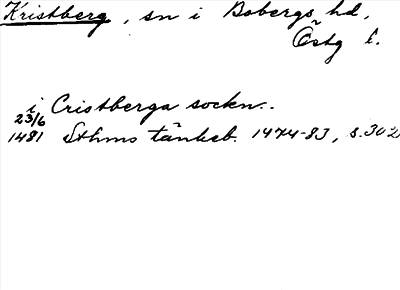 Kristberg, sn i Bobergs hd,
Östg l.
i Cristberga sockn..
23/6
1481 Sthms tänkeb. 1474-83, s. 302